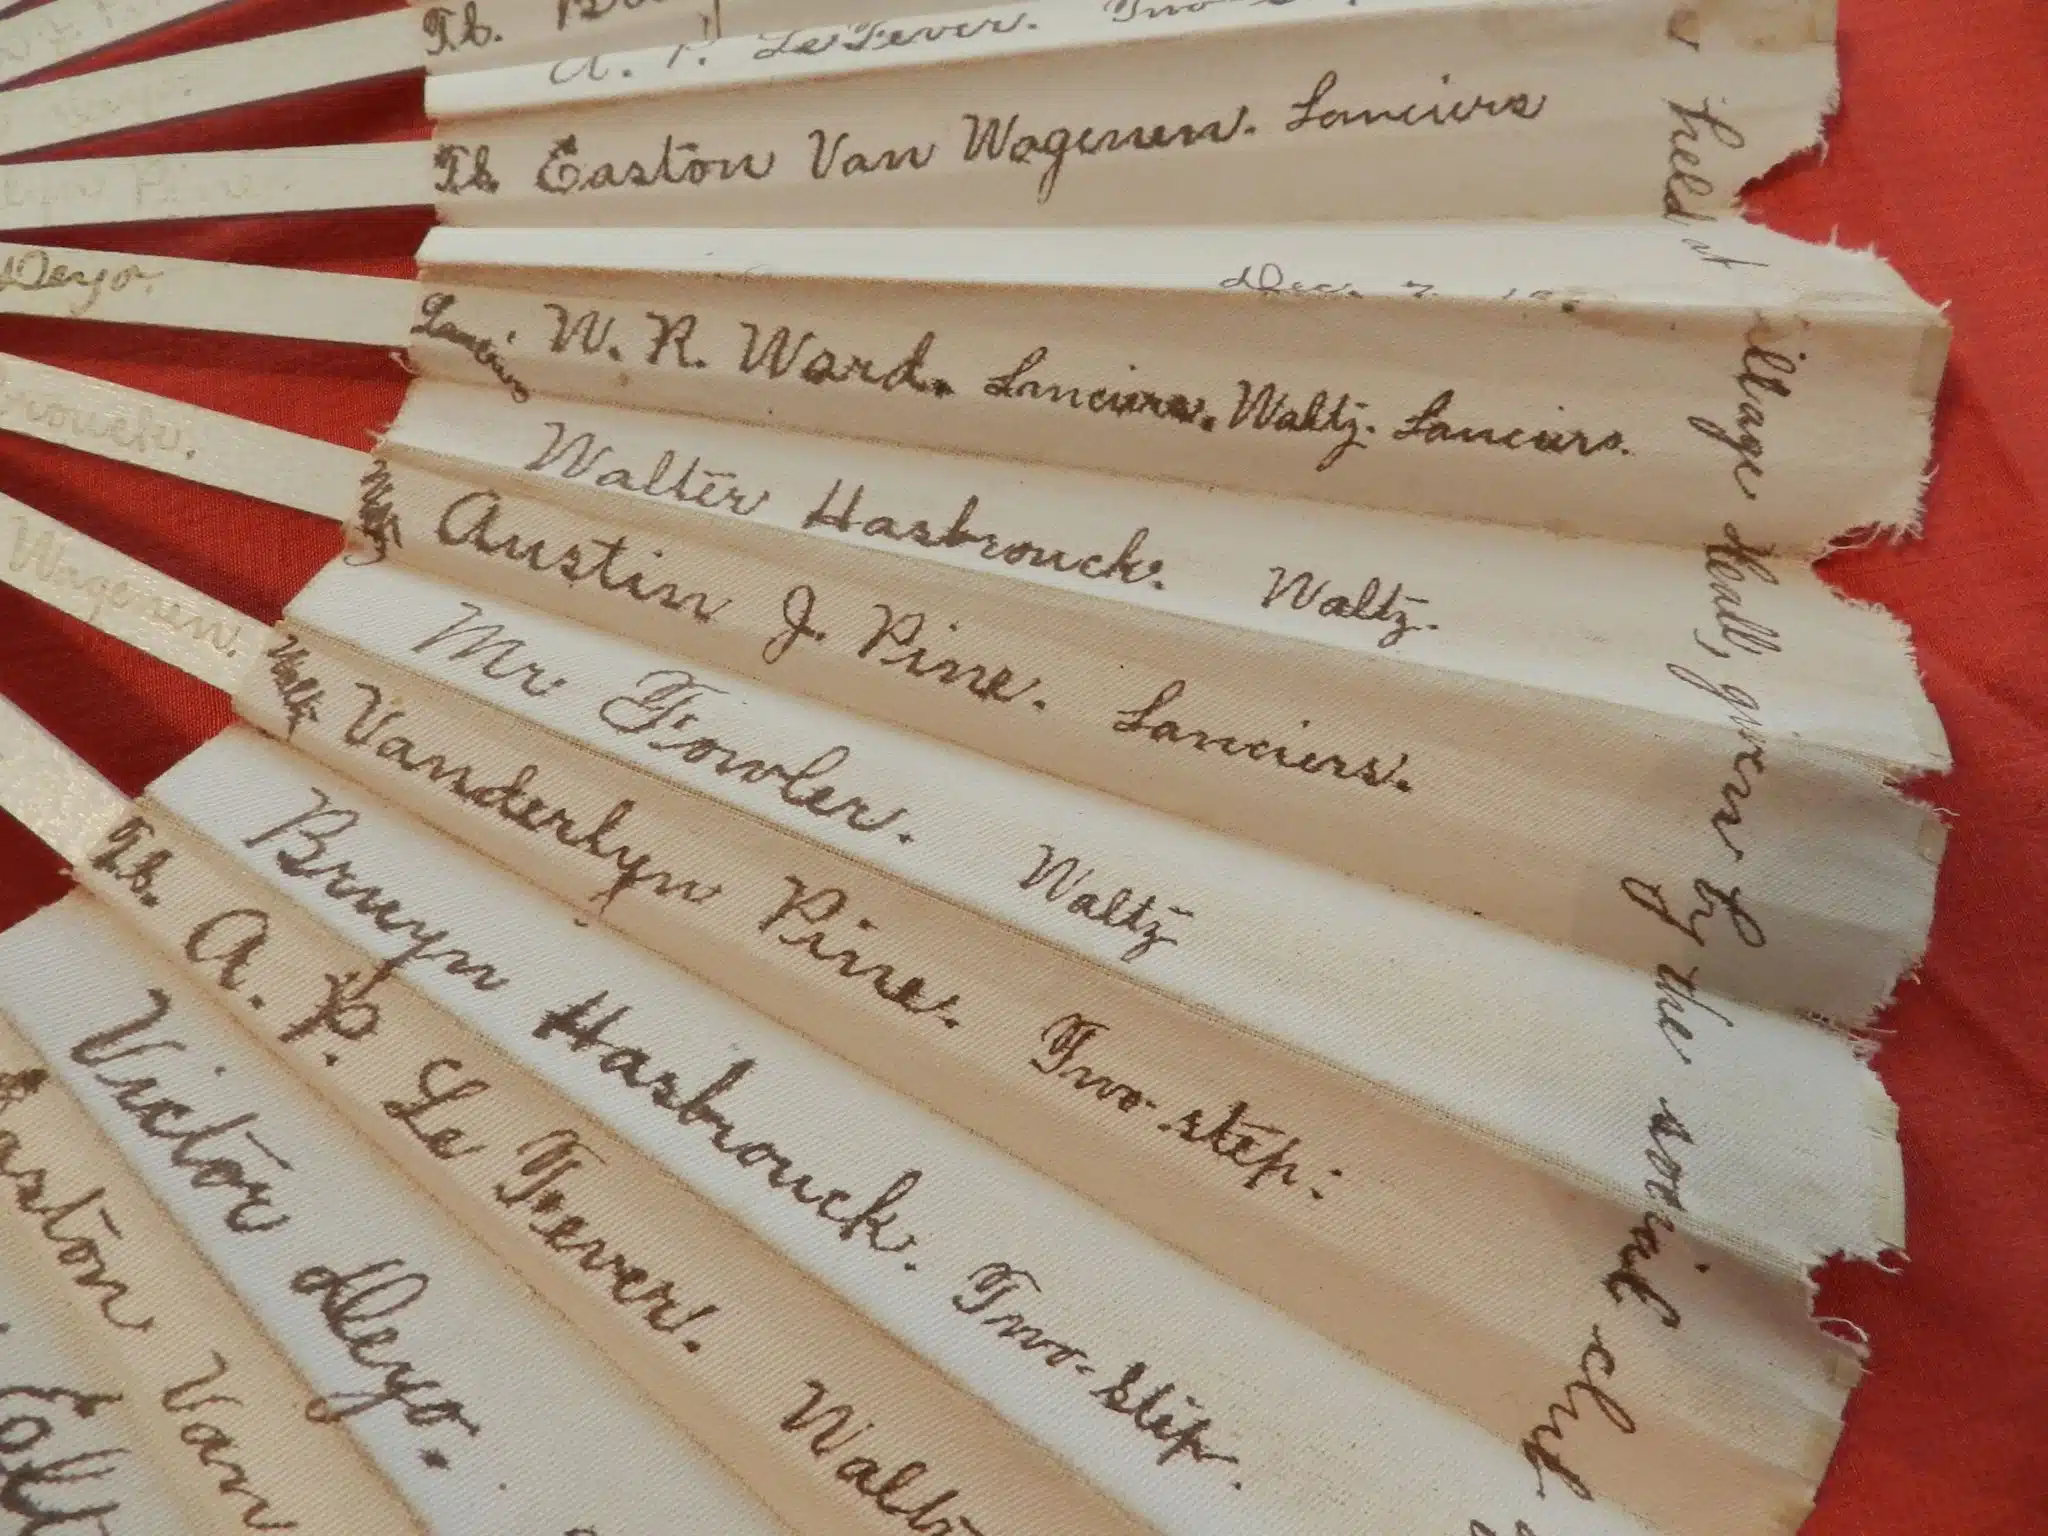 T.b.
A. P. Le Fever. Two-
T.b. Easton Van Wagenen. Lanciers
Dec. 7.
Lanciers W. R. Ward. Lanciers. Waltz. Lanciers.
Walter Hasbrouck. Waltz.
Austin J. Pine. Lanciers.
Mr. Fowler. Waltz
Waltz Vanderlyn Pine. Two-step.
Bruyn Hasbrouck. Two-step.
T.b. A. P. Le Fever. Waltz
Victor Deyo.
Easton Van
held at Village Hall, given by the social club
Pine.
Deyo.
rouck.
Wagenen.